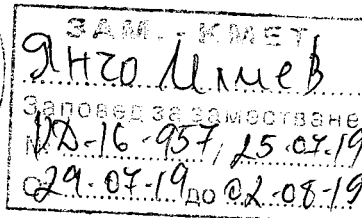 ЗАМ. КМЕТ
Янчо Илиев
Заповед за заместване
№ РД-16-957/25.07.19
от 29.07.19 до 02.08.19